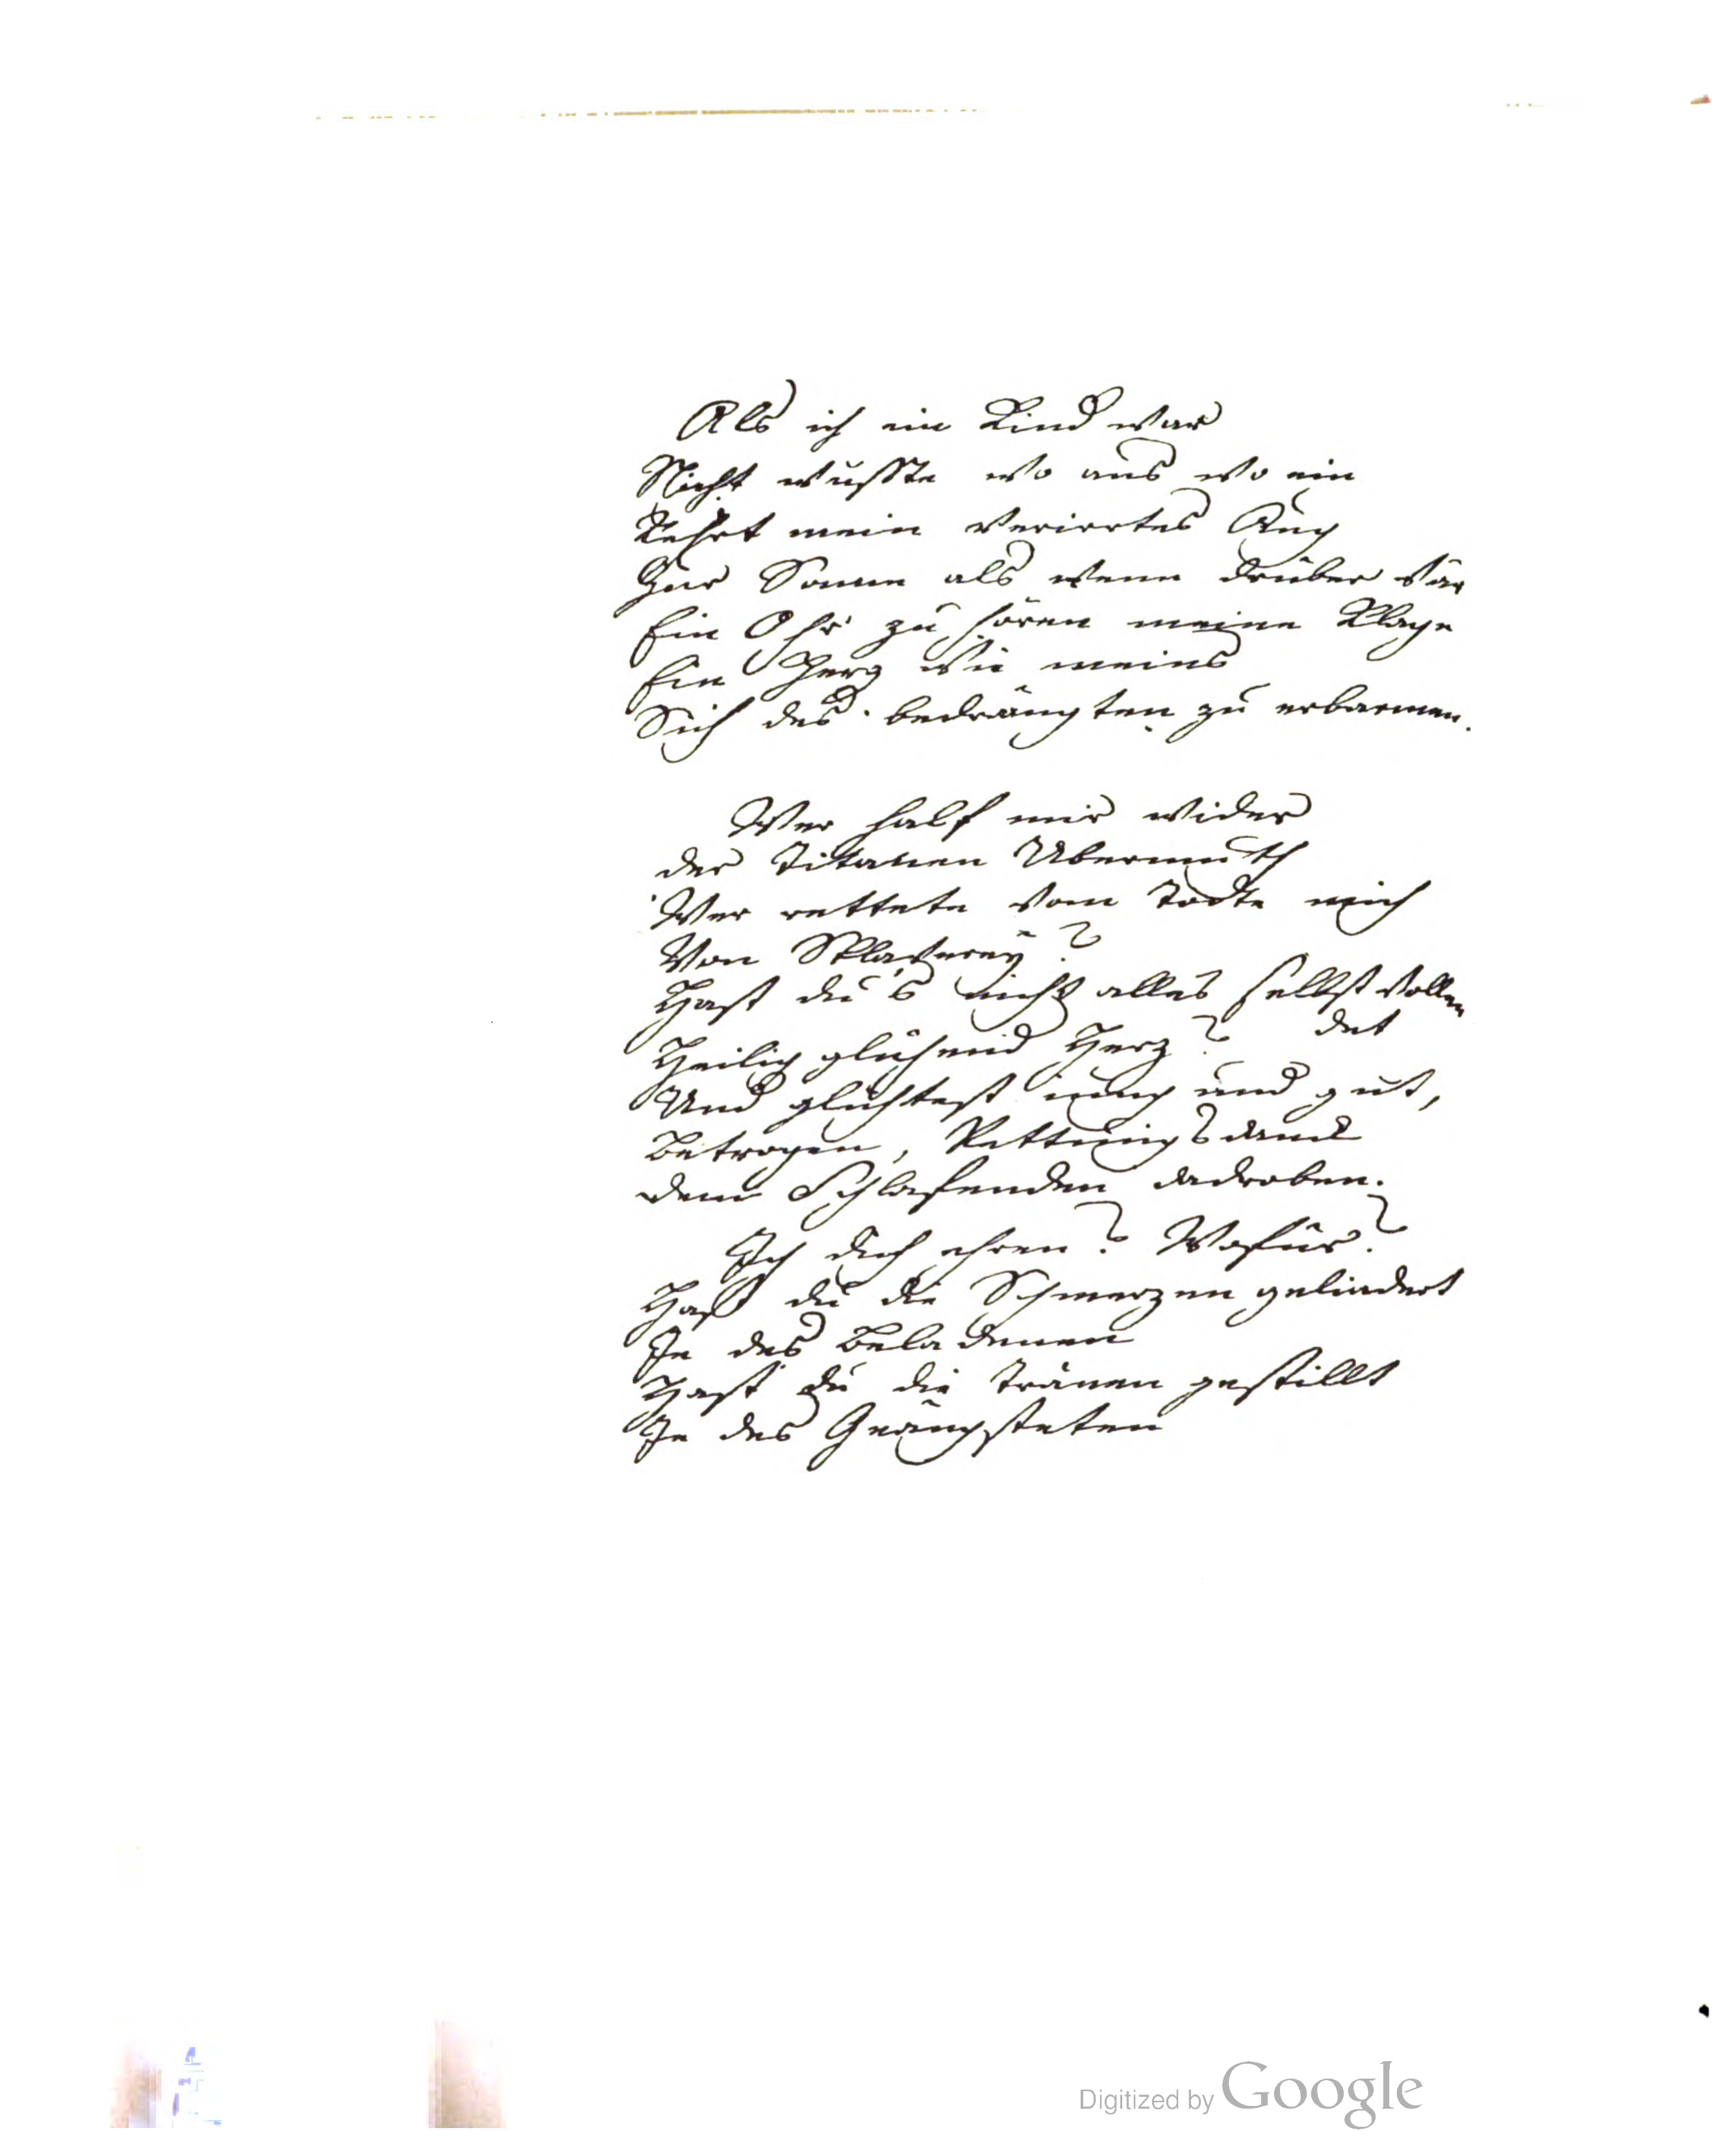 Als ich ein Kind war
Nicht wusste wo aus wo ein
Kehrt mein verirrtes Aug
Zur Sonne als wenn drüber wär
Ein Ohr zu hören meine Klage
Ein Herz wie meins
Sich des bedrängten zu erbarmen.
Wer half mir wider
der Titanen Übermuth
Wer rettete vom Todte mich
Von Sklaverey?
Hast du's nicht alles selbst vollen
det
Heilig glühend Herz?
Und glühtest iung und gut,
Betrogen, Rettungsdanck
dem Schlafenden dadroben.
Ich dich ehren? Wofür?
Hast du die Schmerzen gelindert
Je des Beladenen
Hast du die Tränen gestillt
Je des Geängsteten
Digitized by Google